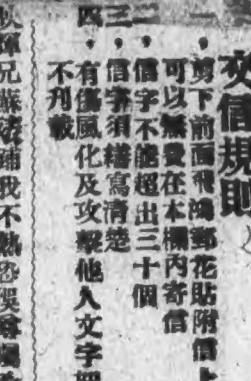 交信規則
一，剪下前面飛鴻郵花貼附信上
可以無費在本欄內寄信
二，信字不能超出三十個
三，信字須繕寫清楚
四，有傷風化及攻擊他人文字
不刊載
兄蘇 我不熟